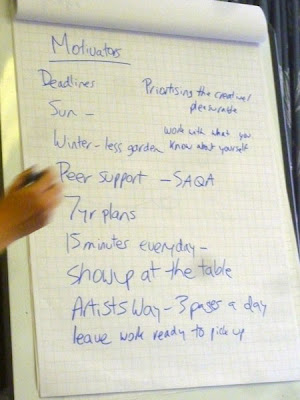 Motivators
Deadlines
Prioritising the creative/
pleasurable
Sun -
work with what you
Winter - less garden
know about yourself
Peer support - SAQA
7yr plans
15 minutes everyday -
show up at the table
Artists Way - 3 pages a day
leave work ready to pick up